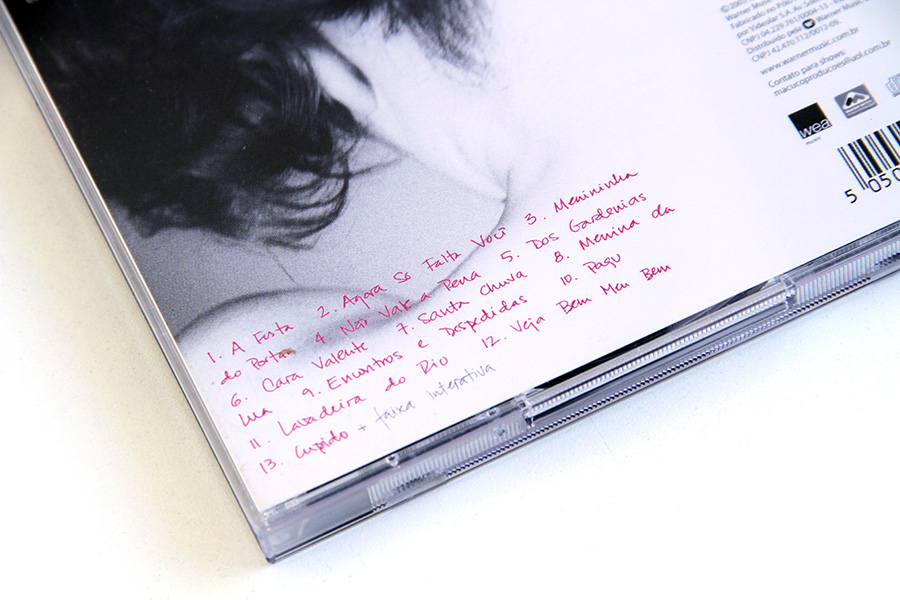 1. A Festa 2. Agora Só Falta Você 3. Menininha
do Portão 4. Não Vale a Pena 5. Dos Gardenias
6. Cara Valente 7. Santa Chuva 8. Menina da
Lua 9. Encontros e Despedidas 10. Pagu
11. Lavadeira do Rio 12. Veja Bem Meu Bem
13. Cupido + faixa interativa
Warner Music
Fabricado no
por Videolar S.A.
CNPJ 04.229.761/0004-13
Distribuído pela Warner Music
CNPJ 42.470.712/0012-09.
www.warnermusic.com.br
Contato para shows:
macucoproducoes@uol.com.br
wea
music
5 050